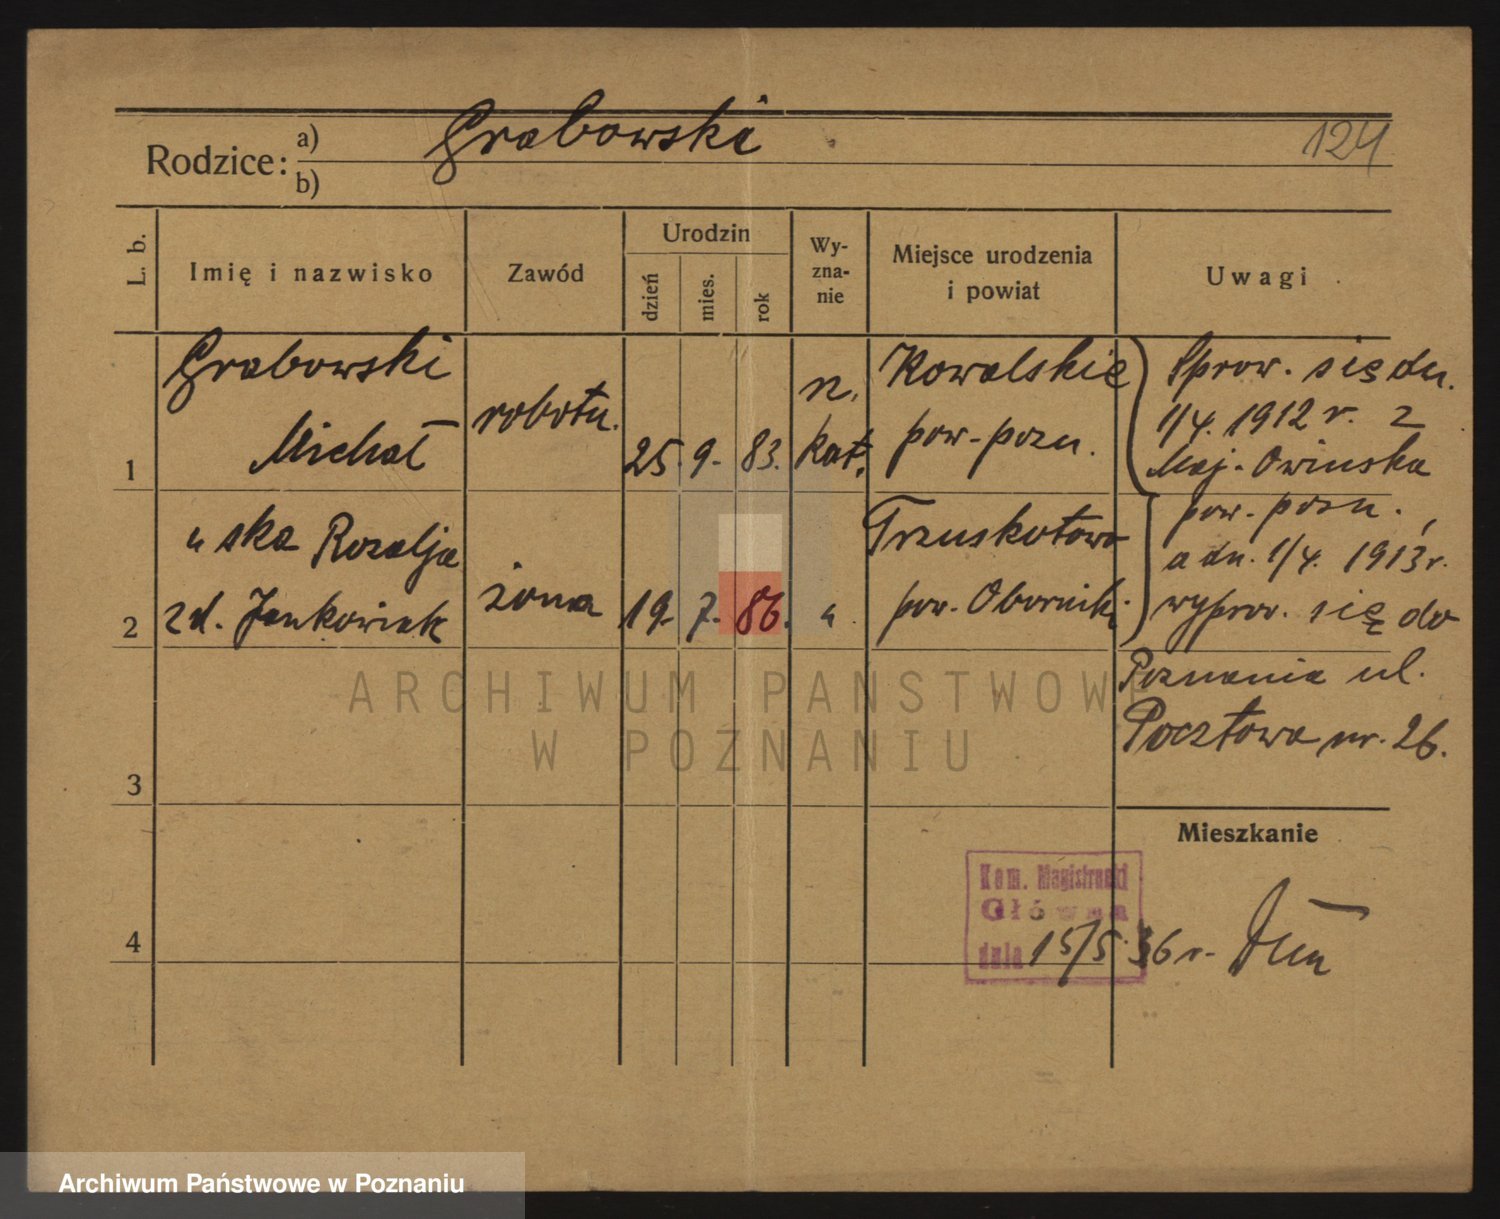 124
Rodzice: a) Grabowski
b)
L. b.
Imię i nazwisko
Zawód
Urodzin
dzień
mies.
rok
Wy-
zna-
nie
Miejsce urodzenia
i powiat
Uwagi
1
Grabowski
Michał
robotn.
25. 9. 83.
rz.
kat.
Kowalskie
pow. pozn.
Sprow. się dn.
1/4. 1912 r. z
Maj. Owinska
pow. pozn.,
a dn. 1/4. 1913 r.
wyprow. się do
Poznania ul.
Pocztowa nr. 26.
2
" ska Rozalja
zd. Jankowiak
żona
19. 7. 86.
"
Trzuskotowo
pow. Oborniki
3
4
Mieszkanie
Kom. Magistracki
Główna
dnia 15/5. 36 r.
ARCHIWUM PAŃSTWOWE
W POZNANIU
Archiwum Państwowe w Poznaniu